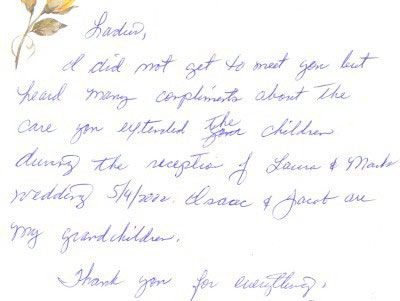 Ladies,
I did not get to meet you but
heard many compliments about the
care you extended the children
during the reception of Laura & Marks
wedding 5/4/2002. Isaac & Jacob are
my grandchildren.
Thank you for everything.